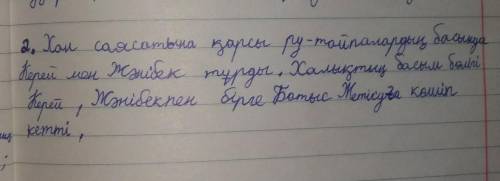 2. Хан саясатына қарсы ру-тайпалардың басында
Керей мен Жәнібек тұрды. Халықтың басым бөлігі
Керей, Жәнібекпен бірге Батыс Жетісуға көшіп
кетті,
;